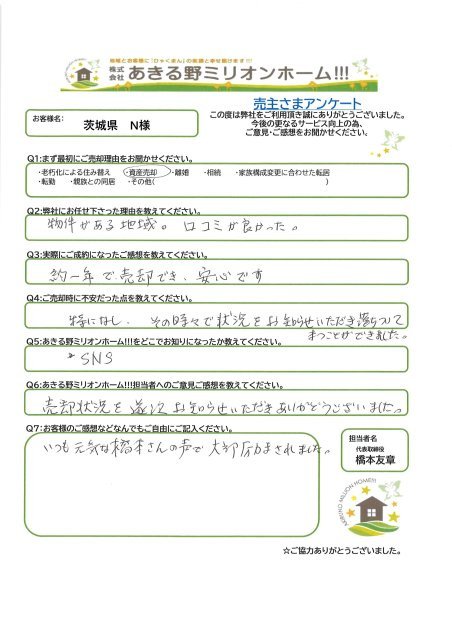 地域とお客様に「ひゃくまん」の笑顔と幸せ届けます!!!
株式会社 あきる野ミリオンホーム!!!
売主さまアンケート
お客様名:
茨城県 N様
この度は弊社をご利用頂き誠にありがとうございました。
今後の更なるサービス向上の為、
ご意見・ご感想をお聞かせください。
Q1:まず最初にご売却理由をお聞かせください。
・老朽化による住み替え ・資産売却 ・離婚 ・相続 ・家族構成変更に合わせた転居
・転勤 ・親族との同居 ・その他( )
Q2:弊社にお任せ下さった理由を教えてください。
物件がある地域。口コミが良かった。
Q3:実際にご成約になったご感想を教えてください。
約一年で売却でき、安心です
Q4:ご売却時に不安だった点を教えてください。
特になし、その時々で状況をお知らせいただき落ちついて
まつことができました。
Q5:あきる野ミリオンホーム!!!をどこでお知りになったか教えてください。
・SNS
Q6:あきる野ミリオンホーム!!!担当者へのご意見ご感想を教えてください。
売却状況を逐次お知らせいただきありがとうございました。
Q7:お客様のご感想などなんでもご自由にご記入ください。
いつも元気な橋本さんの声で大部励まされました。
担当者名
代表取締役
橋本友章
AKIRUNO MILLION HOME!!!
☆ご協力ありがとうございました。